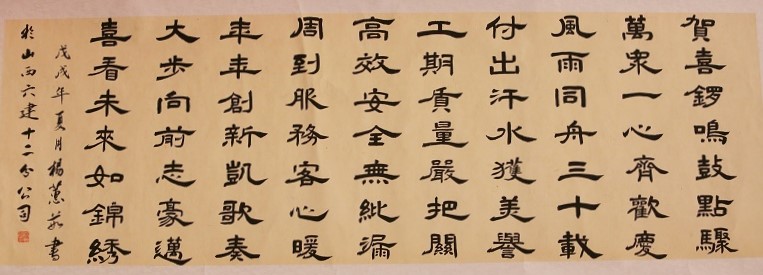 賀喜鑼鳴鼓點驟
萬衆一心齊歡慶
風雨同舟三十載
付出汗水獲美譽
工期質量嚴把關
高效安全無紕漏
周到服務客心暖
年年創新凱歌奏
大步向前志豪邁
喜看未來如錦綉
戊戌年夏月楊蕙茹書
於山西六建十二分公司